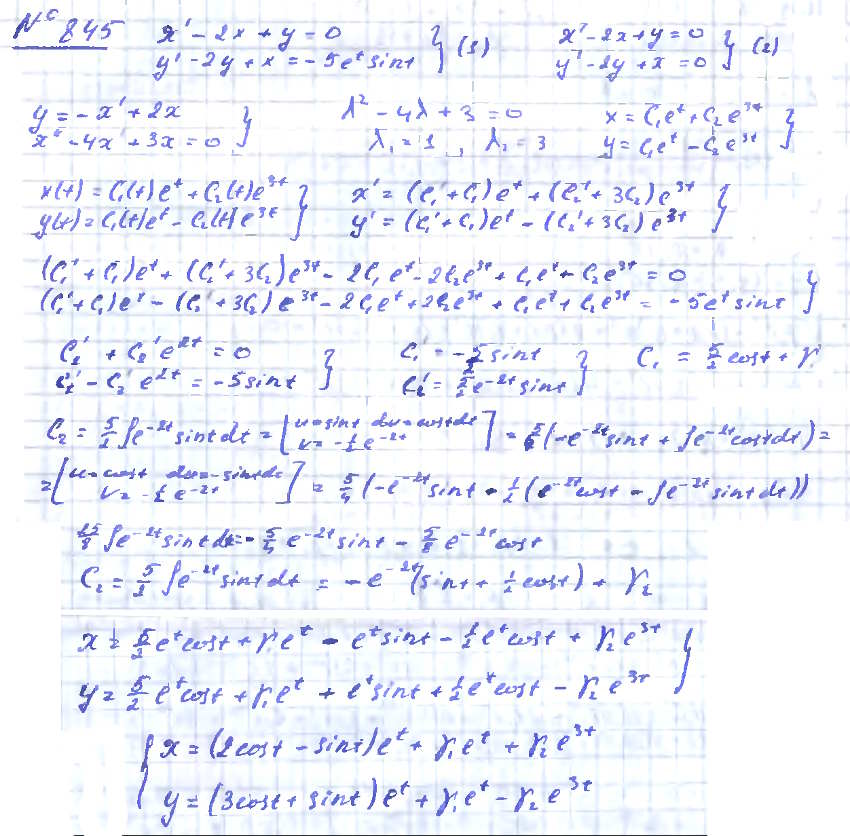 № 845
x' - 2x + y = 0
y' - 2y + x = -5e^t sint } (1)
x' - 2x + y = 0
y' - 2y + x = 0 } (2)
y = -x' + 2x
x'' - 4x' + 3x = 0 }
λ² - 4λ + 3 = 0
λ₁ = 1, λ₂ = 3
x = C₁e^t + C₂e^3t
y = C₁e^t - C₂e^3t }
x(t) = C₁(t)e^t + C₂(t)e^3t
y(t) = C₁(t)e^t - C₂(t)e^3t }
x' = (C₁' + C₁)e^t + (C₂' + 3C₂)e^3t
y' = (C₁' + C₁)e^t - (C₂' + 3C₂)e^3t }
(C₁' + C₁)e^t + (C₂' + 3C₂)e^3t - 2C₁e^t - 2C₂e^3t + C₁e^t - C₂e^3t = 0
(C₁' + C₁)e^t - (C₂' + 3C₂)e^3t - 2C₁e^t + 2C₂e^3t + C₁e^t + C₂e^3t = -5e^t sint }
C₁' + C₂'e^2t = 0
C₁' - C₂'e^2t = -5sint }
C₁' = -5/2 sint
C₂' = 5/2 e^-2t sint }
C₁ = 5/2 cost + γ₁
C₂ = 5/2 ∫e^-2t sint dt = [u = sint du = cost dt
v = -1/2 e^-2t] = 5/4 (-e^-2t sint + ∫e^-2t cost dt) =
= [u = cost du = -sint dt
v = -1/2 e^-2t] = 5/4 (-e^-2t sint - 1/2 (e^-2t cost - ∫e^-2t sint dt))
25/8 ∫e^-2t sint dt = -5/4 e^-2t sint - 5/8 e^-2t cost
C₂ = 5/2 ∫e^-2t sint dt = -e^-2t (sint + 1/2 cost) + γ₂
x = 5/2 e^t cost + γ₁e^t - e^t sint - 1/2 e^t cost + γ₂e^3t
y = 5/2 e^t cost + γ₁e^t + e^t sint + 1/2 e^t cost - γ₂e^3t }
{ x = (2cost - sint)e^t + γ₁e^t + γ₂e^3t
y = (3cost + sint)e^t + γ₁e^t - γ₂e^3t